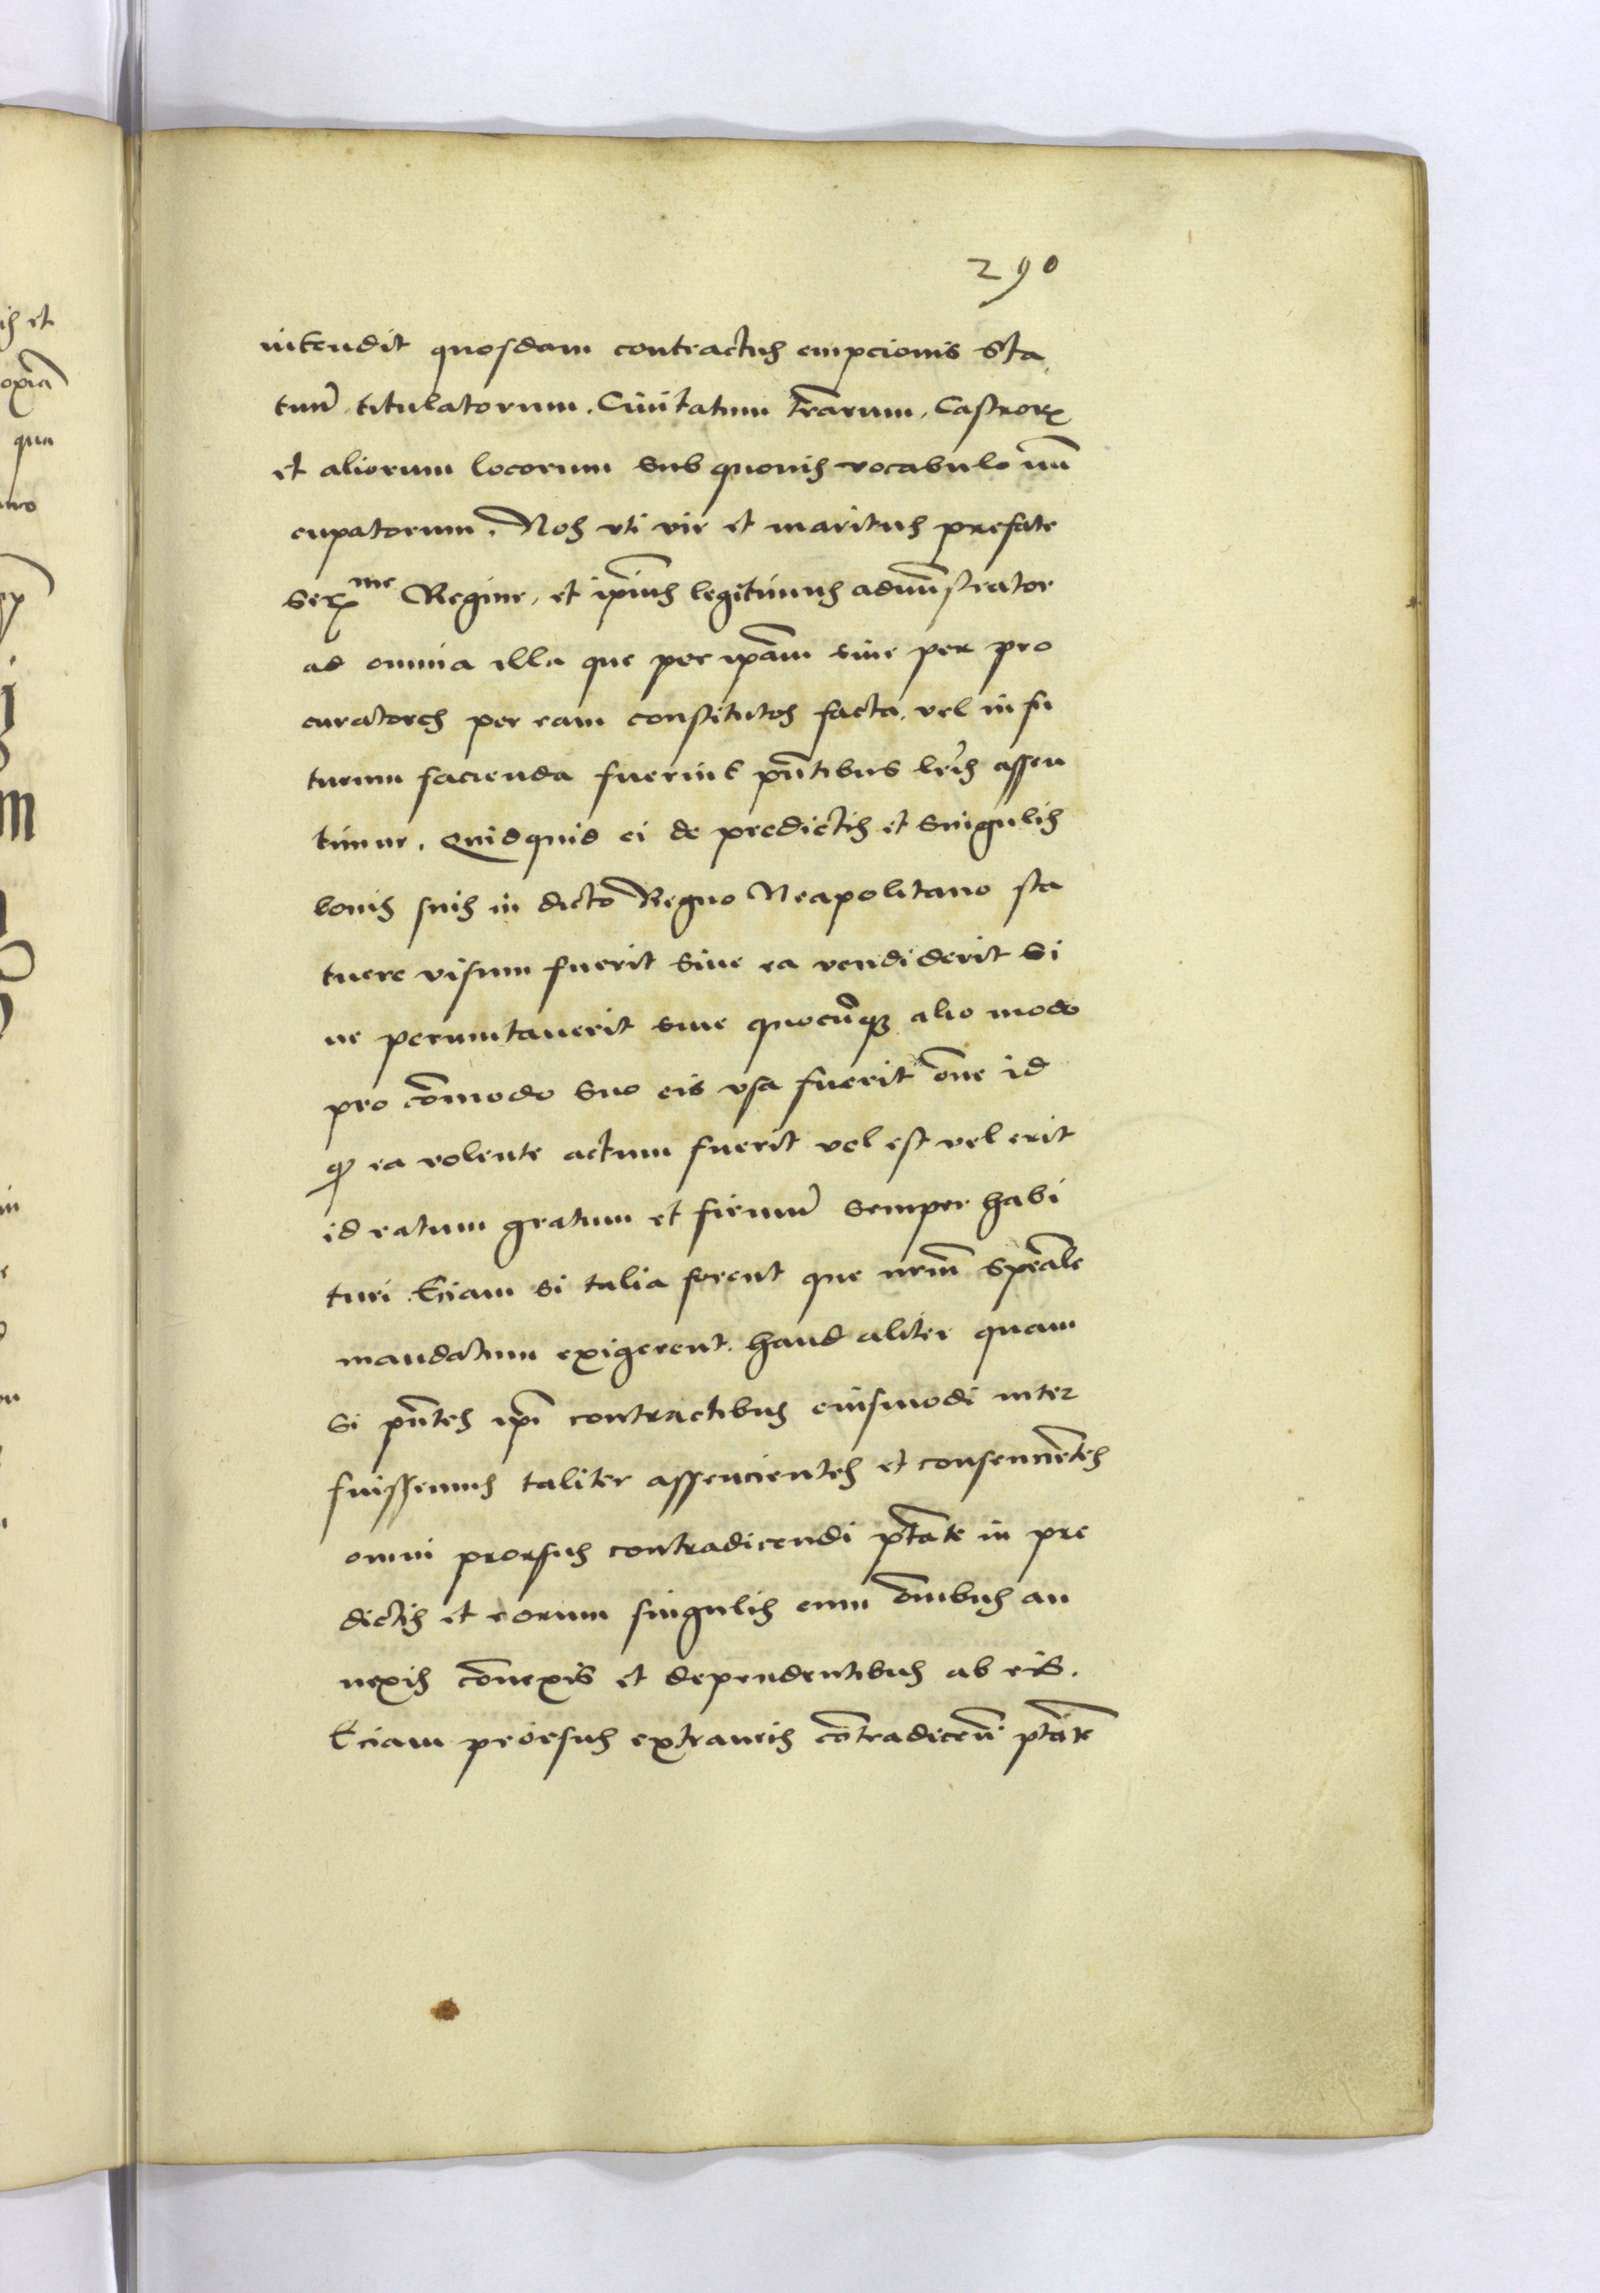 290
intendit quosdam contractus empcionis Sta
tuũ titulatorum. Ciuitatum tr̃arum. Castrorꝝ
et aliorum locorum sub quouis vocabulo nũ
cupatorum. Nos vti vir et maritus prefate
Serᵐᵉ Regine, et ip̃ius legitimus admĩstrator
ad omnia illa que per ip̃am siue per pro
curatores per eam constitutos facta, vel in fu
turum facienda fuerint pñtibus lr̃is assen
timur. Quidquid ei de predictis et singulis
bonis suis in dicto Regno Neapolitano sta
tuere visum fuerit siue ea vendiderit si
ue permutauerit siue quocũqꝫ alio modo
pro cõmodo suo eis vsa fuerit õne id
ꝙ ea volente actum fuerit vel est vel erit
id ratum gratum et firmũ semper habi
turi. Eciam si talia forent que nrũm speãle
mandatum exigerent. haud aliter quam
si pñtes ip̃i contractibus eiusmodi inter
fuissemus taliter assencientes et consencĩetes
omni prorsus contradicendi pt̃ate in pre
dictis et eorum singulis cum õnibus an
nexis cõnexis et dependentibus ab eis.
Eciam prorsus extraneis cõntradicẽdi pt̃ate
ut
qua